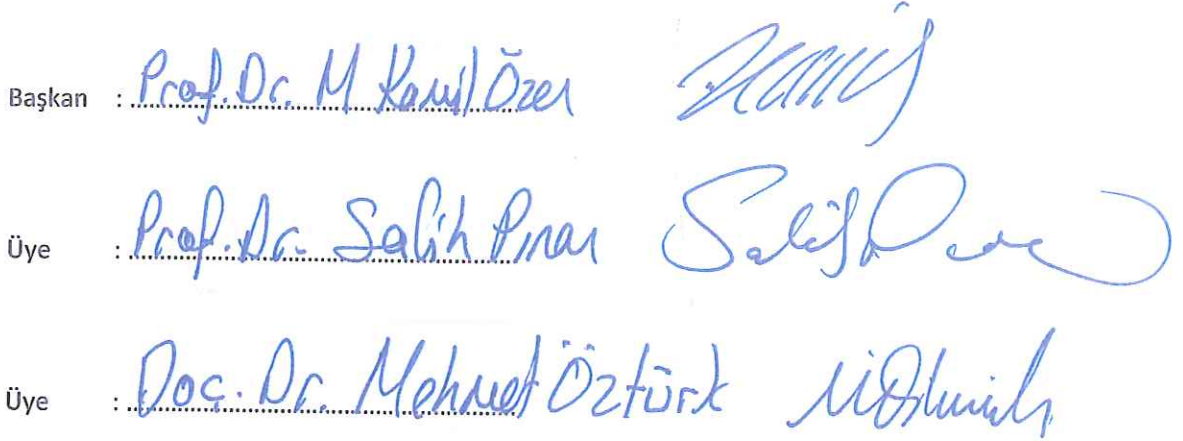 Başkan : Prof. Dr. M Kamil Özer
Üye : Prof. Dr. Salih Pınar
Üye : Doç. Dr. Mehmet Öztürk